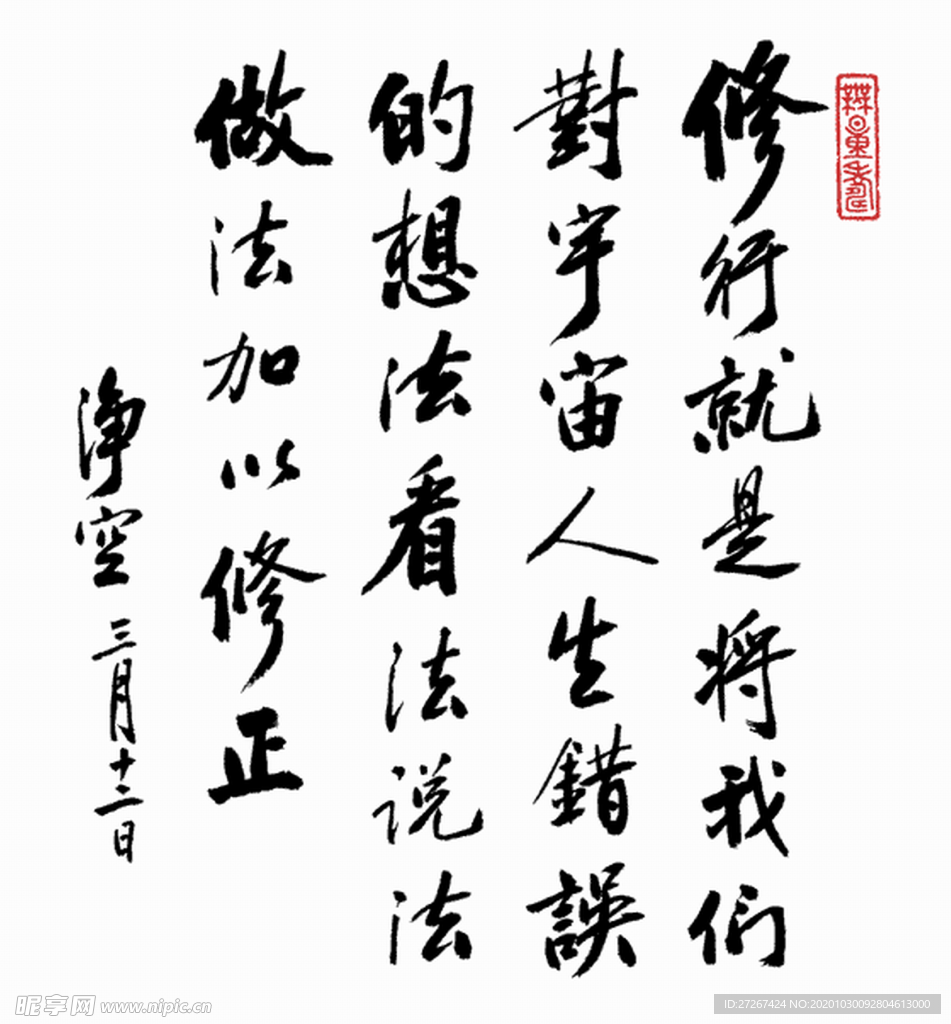 修行就是將我们
對宇宙人生錯誤
的想法看法说法
做法加以修正
淨空 三月十二日
無量壽
昵享网 www.nipic.cn
ID:27267424 NO:20201030092804613000